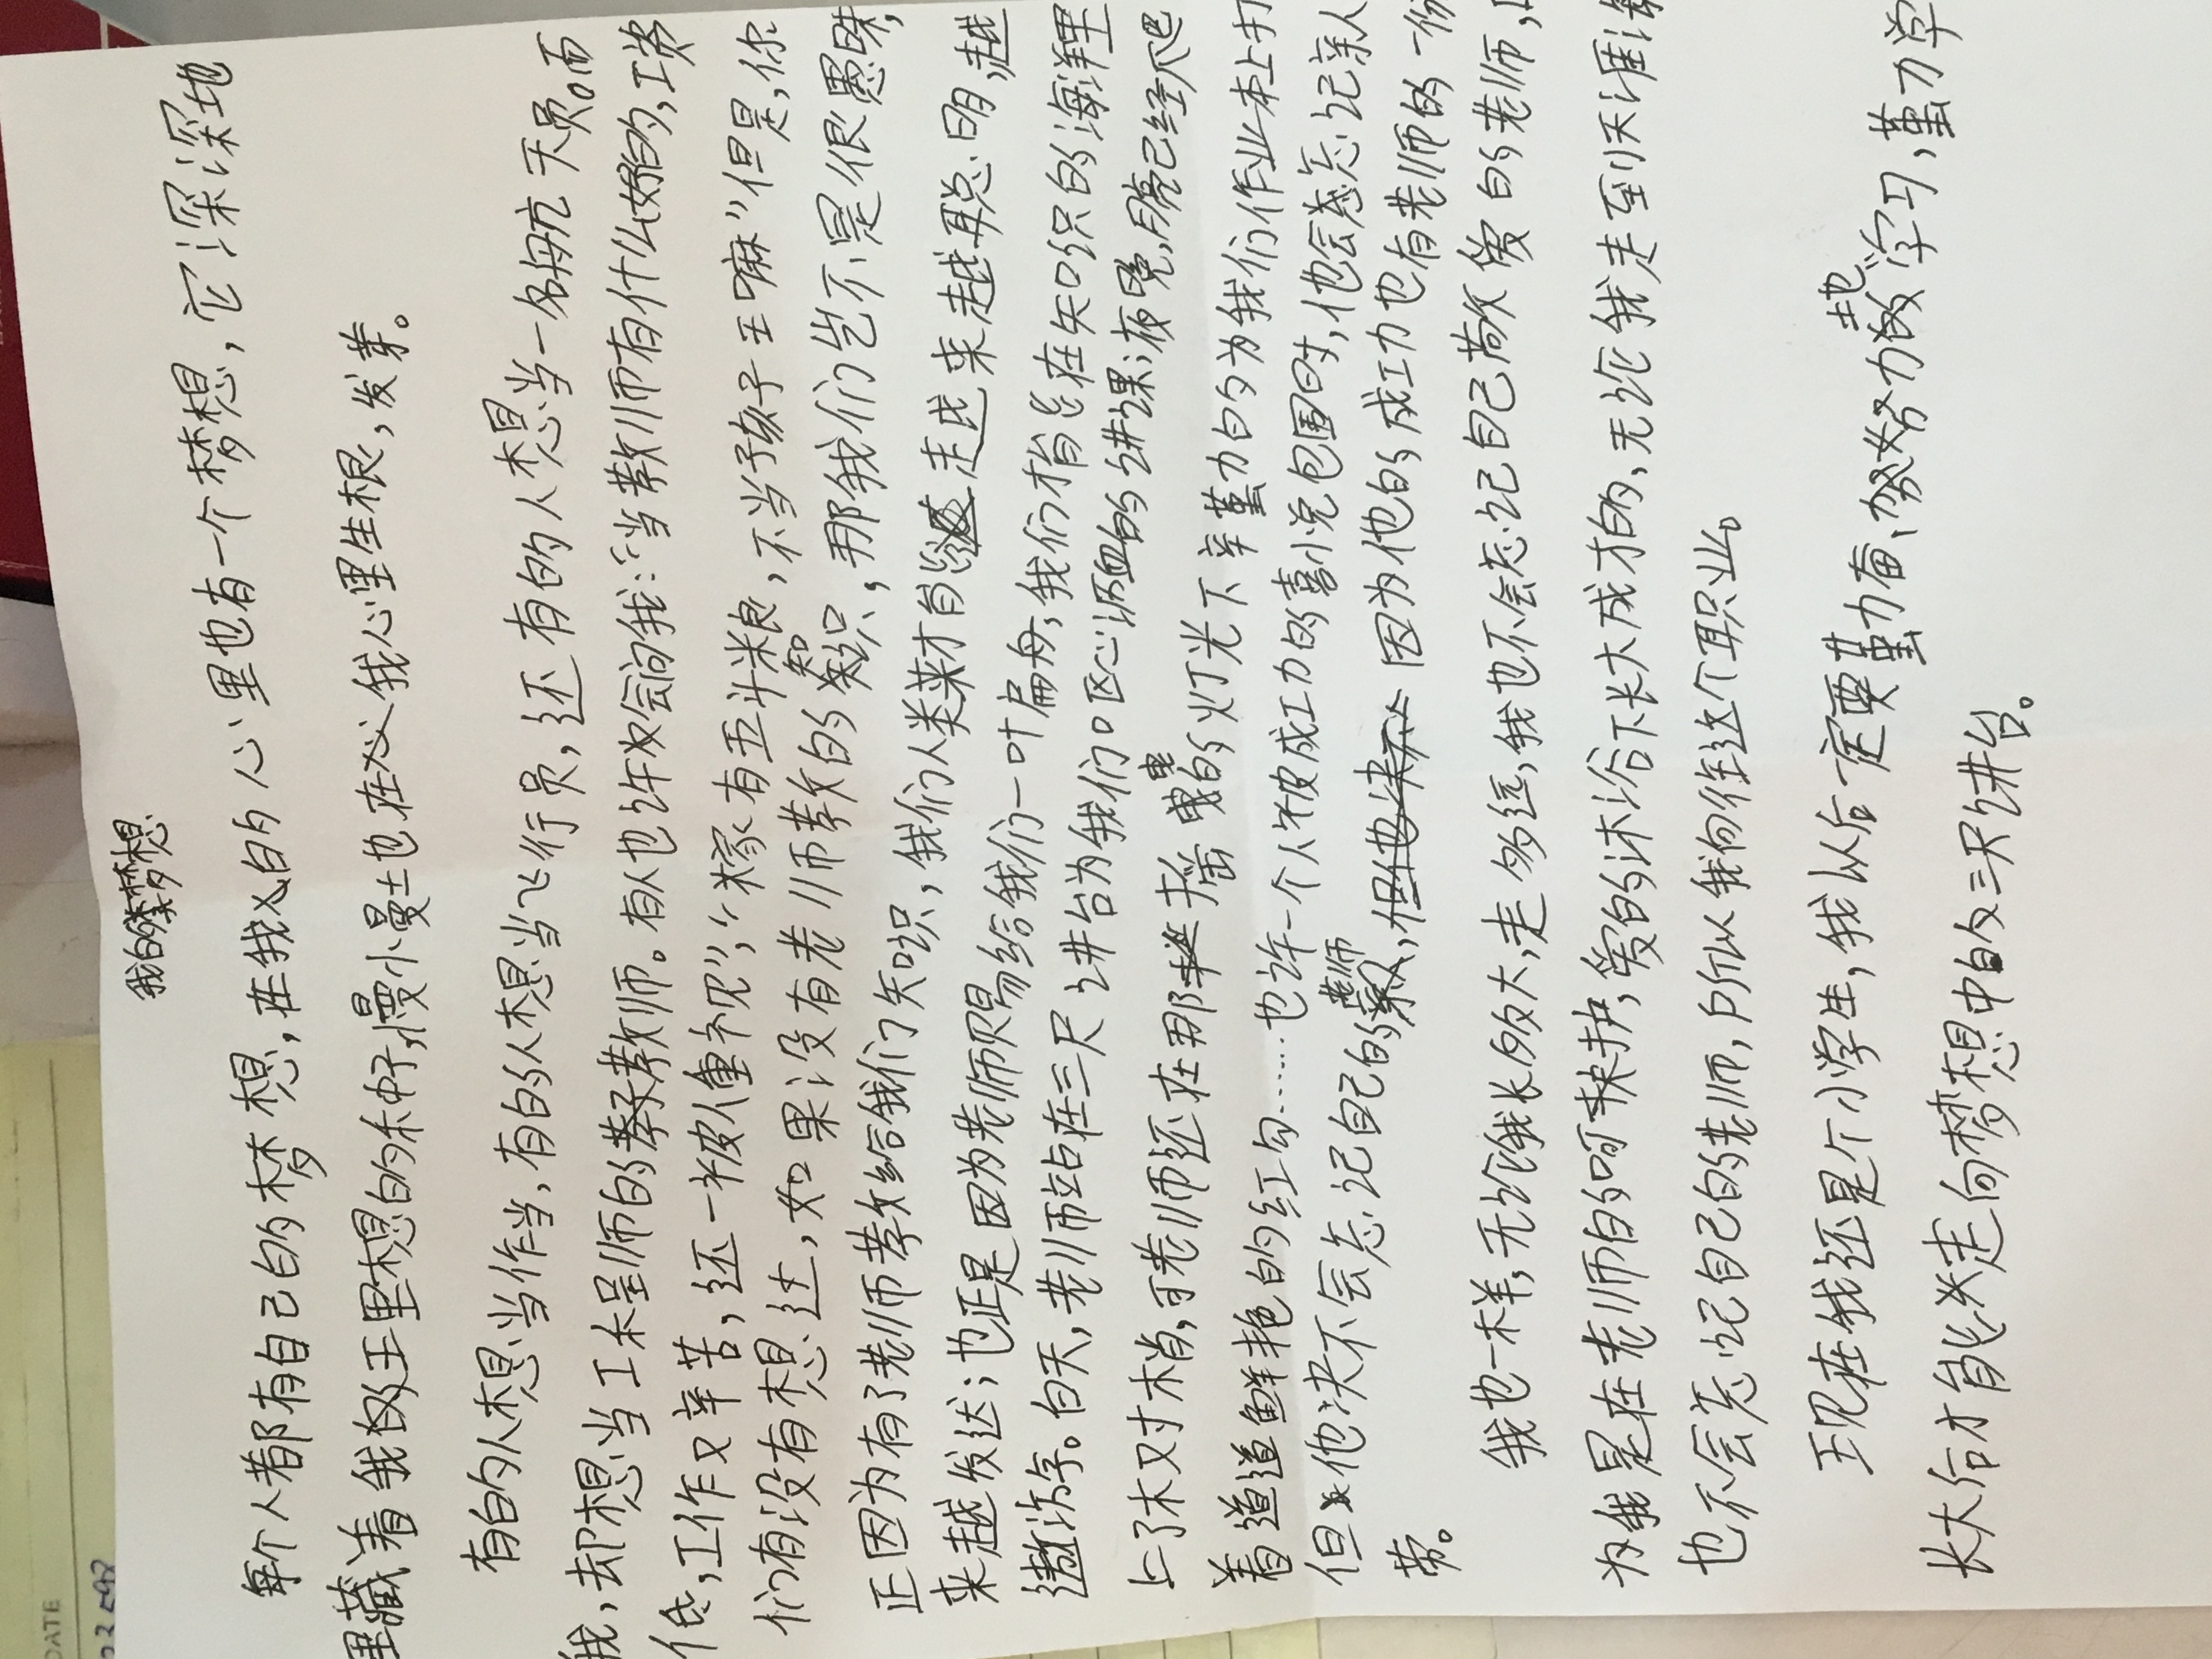 我的梦想
每个人都有自己的梦想，在我的心里也有一个梦想，它深深地
埋藏着我以理想的种子，慢慢地在我心里生根，发芽。
有的人想当作当，有的人想当飞行员，还有的人想当一名航天员。而
我，却想当工程师的教师。有人也许会问我：“当教师有什么好的，工资
低，工作又辛苦，还一被人重视”，“家有五斗粮，不当孩子王嘛”但是，你
们有没有想过，如果没有老师教的知识，那我们岂不是很愚昧，
正因为有了老师教给我们知识，我们人类才能走越来越聪明，越
来越发达；也正是因为老师赐给我们一叶扁舟，我们才能在知识的海洋里
遨游。白天，老师站在三尺讲台为我们呕心沥血的讲课；夜晚，月亮已经爬
上了树梢，可老师还在那摇曳的灯光下辛勤的为我们作业本上打
着道道鲜艳的红勾……也许一个人被成功的喜悦包围时，他会忘记亲人
但他决不会忘记自己的老师，因为他的成功也有老师的一份
劳。
我也一样，无论我长多大，走多远，我也不会忘记自己敬爱的老师，
为我是在老师的呵护，爱的沐浴下长大成才的，无论我走到天涯海
也不会忘记自己的老师，所以我向往这个职业。
现在我还是个小学生，我从后一定要勤奋、努力地学习，勤力学
长大后才能走向梦想中的三尺讲台。
DATE